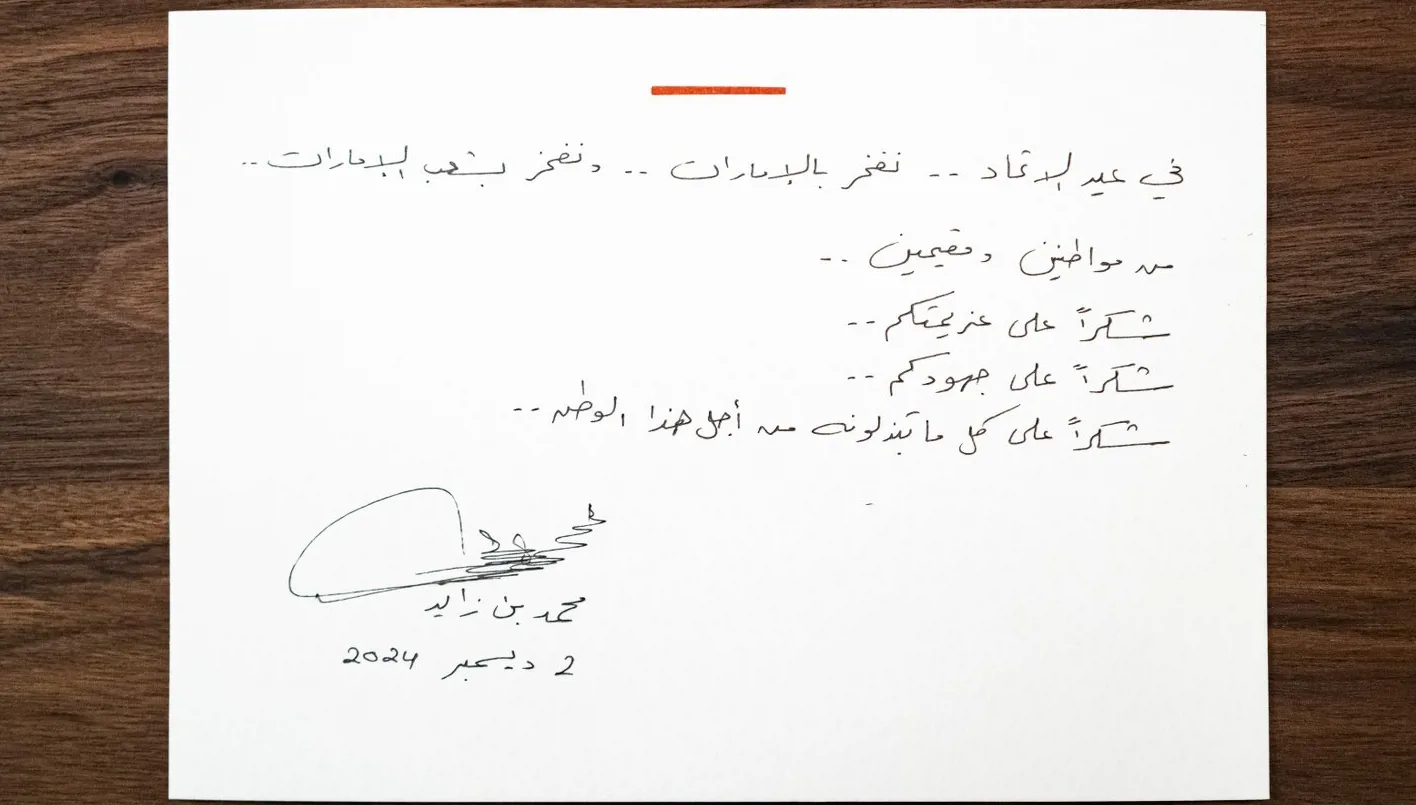 في عيد الاتحاد -- نفخر بالإمارات -- ونفخر بشعب الإمارات --
من مواطنين ومقيمين --
شكراً على عزيمتكم --
شكراً على جهودكم --
شكراً على كل ما تبذلونه من أجل هذا الوطن --
محمد بن زايد
2 ديسمبر 2024